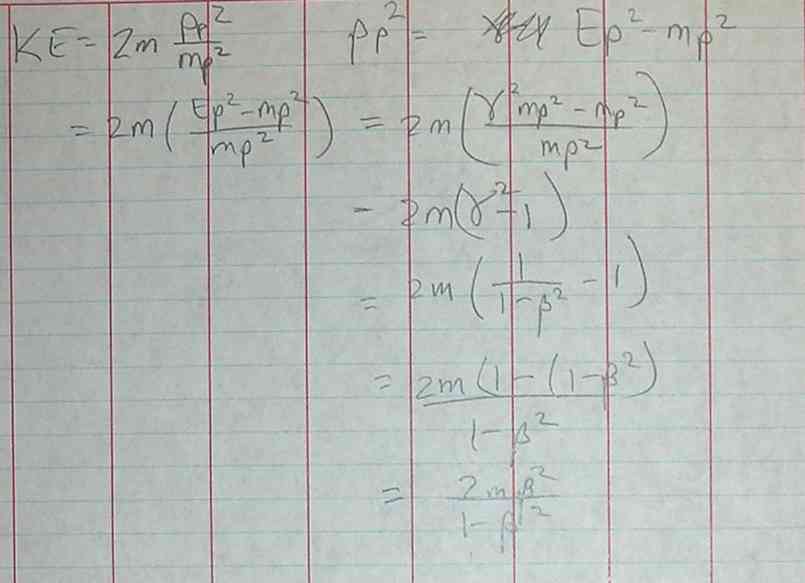 KE = 2m Pp²/mp²    Pp² = Ep² - mp²
= 2m ( (Ep² - mp²)/mp² ) = 2m ( (γ²mp² - mp²)/mp² )
- 2m(γ² - 1)
= 2m ( 1/(1-β²) - 1 )
= 2m (1 - (1-β²) / 1-β²
= 2mβ²/1-β²